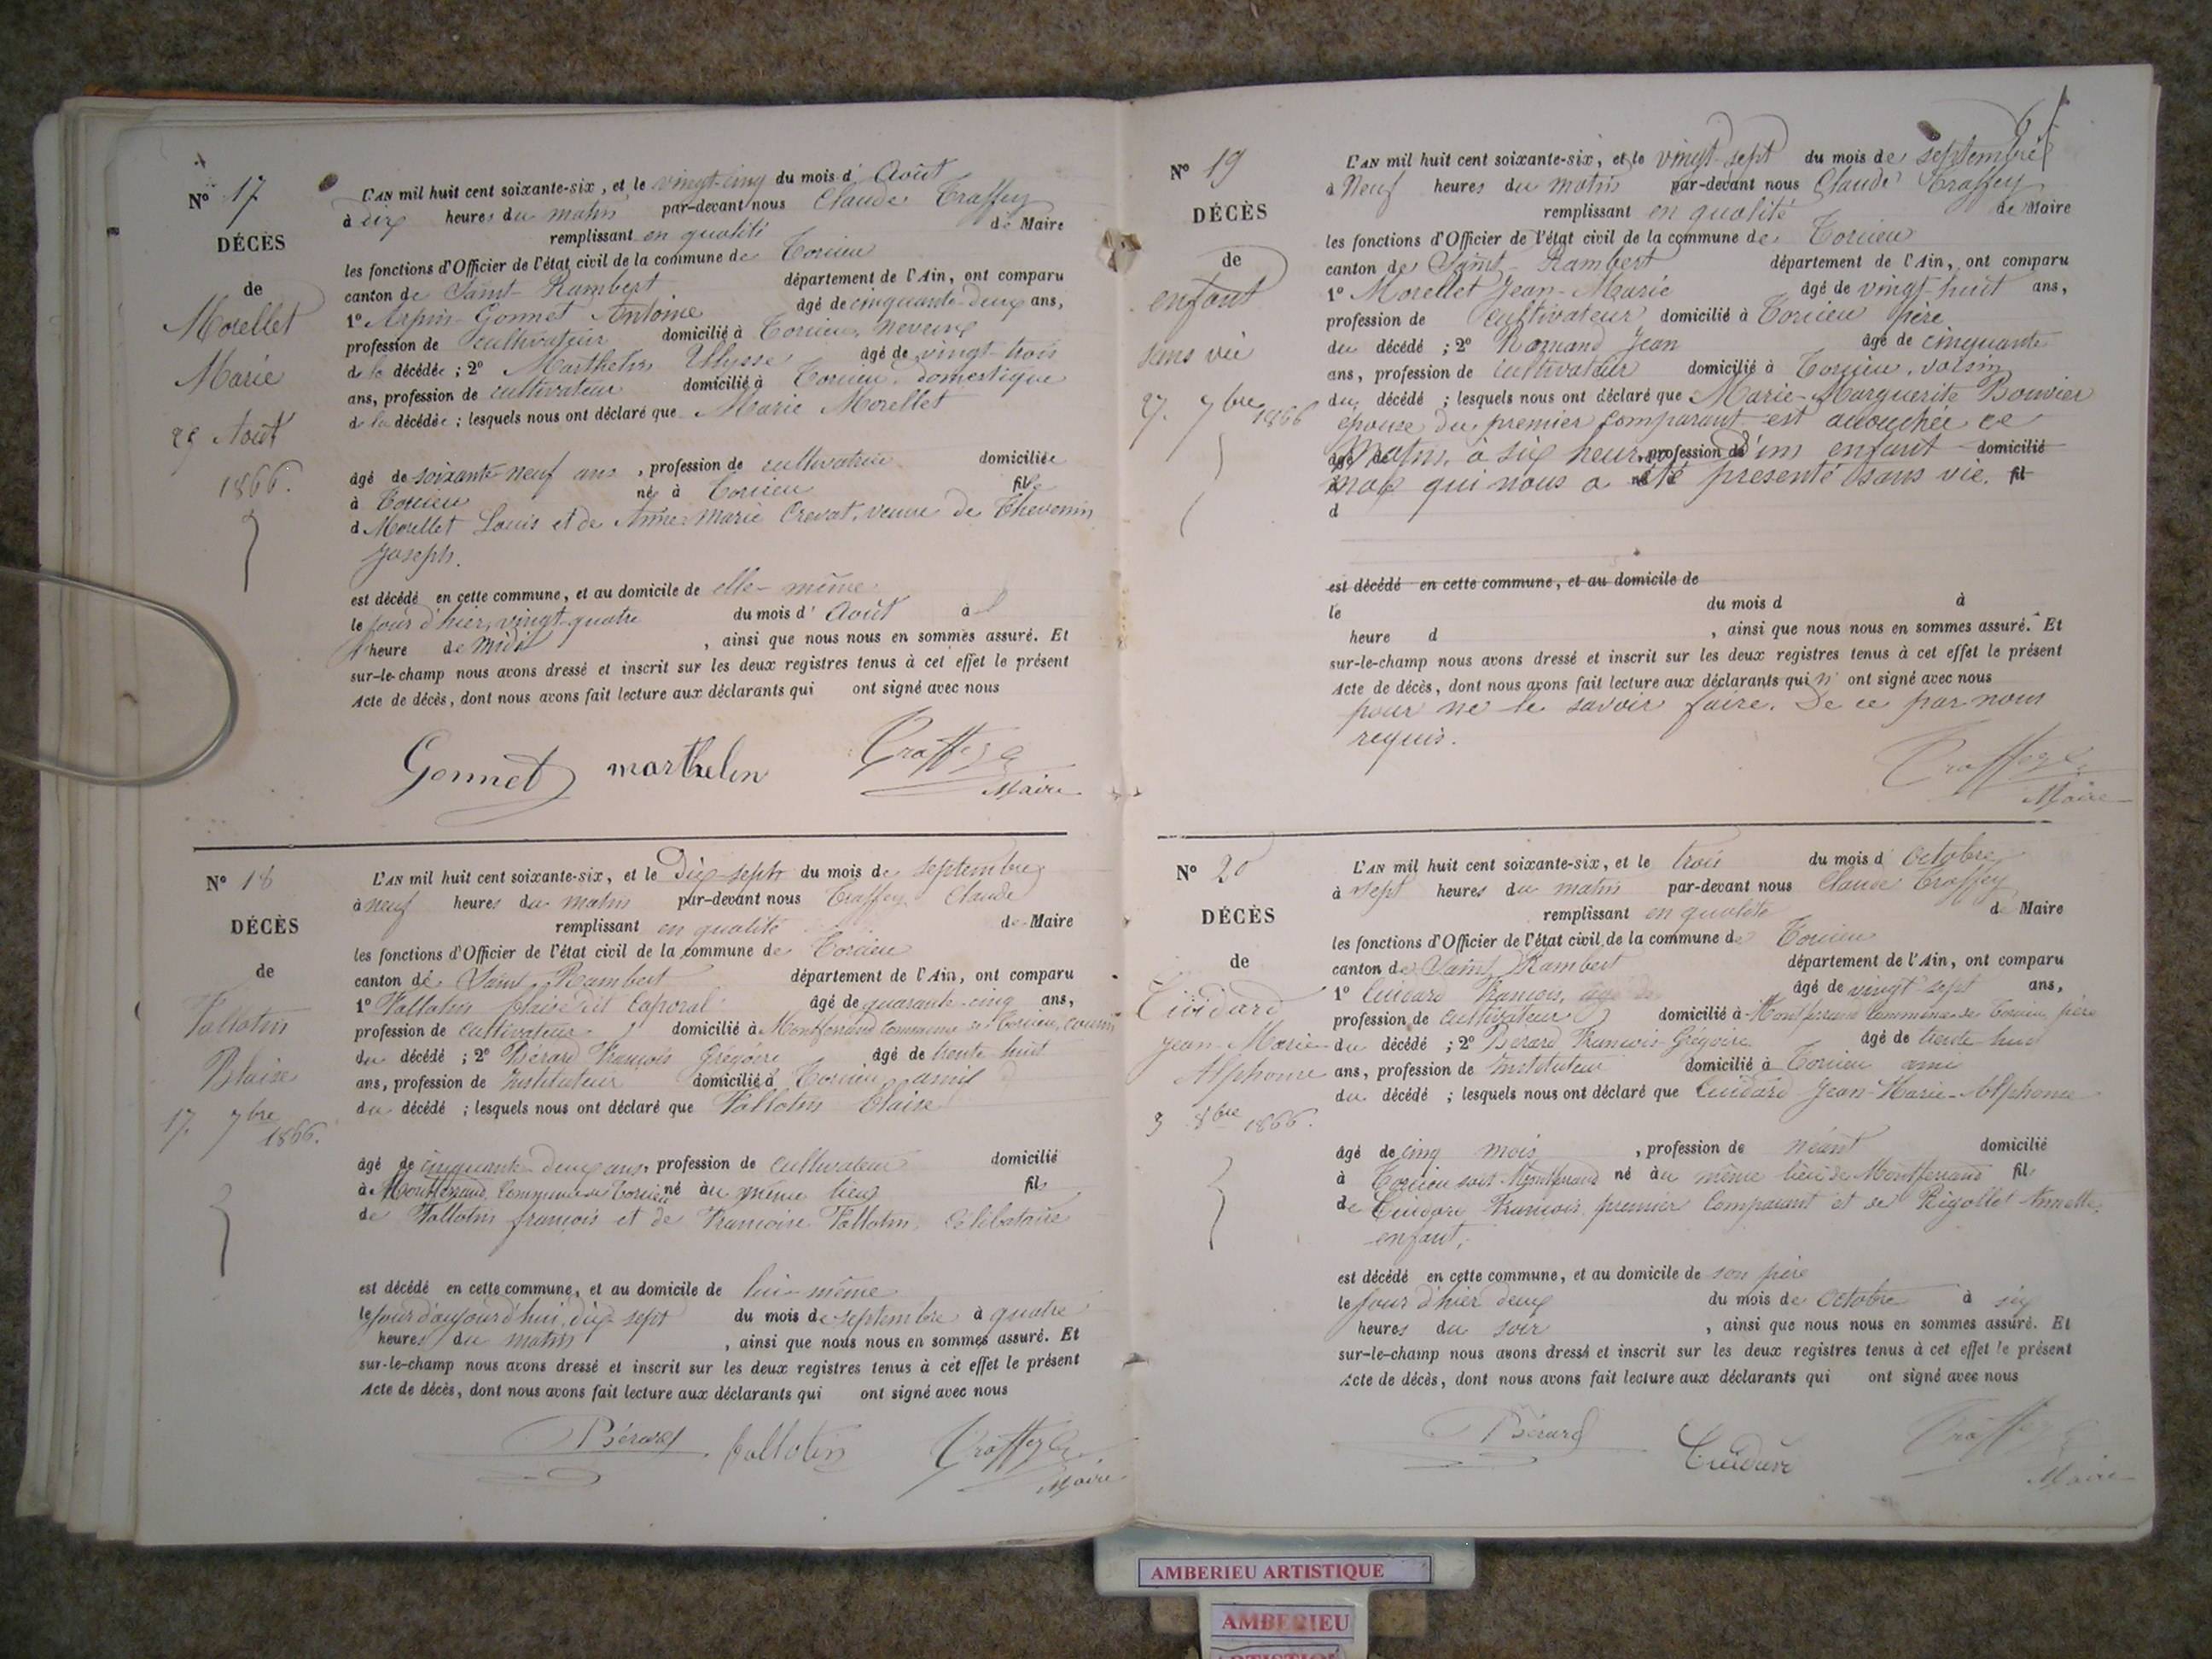 N° 17
DÉCÈS
de
Morellet
Marie
25 Août
1866.
L'AN mil huit cent soixante-six, et le vingt-cinq du mois d' Août
à dix heures du matin par-devant nous Claude Traffey
remplissant en qualité de Maire
les fonctions d'Officier de l'état civil de la commune de Torcieu
canton de Saint-Rambert département de l'Ain, ont comparu
1° Arpin-Gonnet Antoine âgé de cinquante-deux ans,
profession de cultivateur domicilié à Torcieu, neveu
de la décédée ; 2° Marthelin Ulysse âgé de vingt-trois
ans, profession de cultivateur domicilié à Torcieu, domestique
de la décédée ; lesquels nous ont déclaré que Marie Morellet
âgé de soixante neuf ans, profession de cultivatrice domiciliée
à Torcieu né à Torcieu fille
d Morellet Louis et de Anne-Marie Crevat, veuve de Thevenin
Joseph.
est décédé en cette commune, et au domicile de elle-même
le jour d'hier, vingt-quatre du mois d' Août à
1 heure de midi, ainsi que nous nous en sommes assuré. Et
sur-le-champ nous avons dressé et inscrit sur les deux registres tenus à cet effet le présent
Acte de décès, dont nous avons fait lecture aux déclarants qui ont signé avec nous
Gonnet marthelin Traffey
Maire
N° 18
DÉCÈS
de
Vallotin
Blaise
17. 7bre
1866.
L'AN mil huit cent soixante-six, et le Dix-sept du mois de septembre
à neuf heures du matin par-devant nous Traffey Claude
remplissant en qualité de Maire
les fonctions d'Officier de l'état civil de la commune de Torcieu
canton de Saint-Rambert département de l'Ain, ont comparu
1° Vallotin blaise dit Caporal âgé de quarante-cinq ans,
profession de cultivateur domicilié à Montferrand commune de Torcieu, cousin
du décédé ; 2° Bérard François Grégoire âgé de trente huit
ans, profession de Instituteur domicilié à Torcieu ami
du décédé ; lesquels nous ont déclaré que Vallotin blaise
âgé de cinquante-deux ans, profession de cultivateur domicilié
à Montferrand, Commune de Torcieu né au même lieu fils
de Vallotin françois et de Françoise Vallotin, célibataire
est décédé en cette commune, et au domicile de lui-même
le jour d'aujourd'hui, dix-sept du mois de septembre à quatre
heures du matin, ainsi que nous nous en sommes assuré. Et
sur-le-champ nous avons dressé et inscrit sur les deux registres tenus à cet effet le présent
Acte de décès, dont nous avons fait lecture aux déclarants qui ont signé avec nous
Bérard Vallotin Traffey
Maire
N° 19
DÉCÈS
de
enfant
sans vie
27. 7bre 1866
L'AN mil huit cent soixante-six, et le vingt-sept du mois de septembre
à Neuf heures du matin par-devant nous Claude Traffey
remplissant en qualité de Maire
les fonctions d'Officier de l'état civil de la commune de Torcieu
canton de Saint-Rambert département de l'Ain, ont comparu
1° Morellet Jean-Marie âgé de vingt-huit ans,
profession de cultivateur domicilié à Torcieu père
du décédé ; 2° Jean âgé de cinquante
ans, profession de cultivateur domicilié à Torcieu, voisin
du décédé ; lesquels nous ont déclaré que Marie-Marguerite Bouvier
épouse du premier comparant est accouchée ce
âgé de matin, à six heures, profession de d'un enfant domicilié
à mal qui nous a né à été présenté sans vie. fil
d
est décédé en cette commune, et au domicile de
le du mois d à
heure d , ainsi que nous nous en sommes assuré. Et
sur-le-champ nous avons dressé et inscrit sur les deux registres tenus à cet effet le présent
Acte de décès, dont nous avons fait lecture aux déclarants qui n' ont signé avec nous
pour ne le savoir faire. De ce par nous
requis.
Traffey
Maire
N° 20
DÉCÈS
de
Cuidard
Jean-Marie
Alphonse
3 8bre 1866.
L'AN mil huit cent soixante-six, et le trois du mois d' Octobre
à sept heures du matin par-devant nous Claude Traffey
remplissant en qualité de Maire
les fonctions d'Officier de l'état civil de la commune de Torcieu
canton de Saint Rambert département de l'Ain, ont comparu
1° Cuidard François, âgé de vingt sept ans,
profession de cultivateur domicilié à Montferrand Commune de Torcieu père
du décédé ; 2° Bérard François-Grégoire âgé de trente-huit
ans, profession de Instituteur domicilié à Torcieu ami
du décédé ; lesquels nous ont déclaré que Cuidard Jean-Marie-Alphonse
âgé de cinq mois, profession de néant domicilié
à Torcieu soit Montferrand né au même lieu de Montferrand fils
de Cuidard François premier Comparant et de Rigollet Annette,
enfant,
est décédé en cette commune, et au domicile de son père
le jour d'hier deux du mois de Octobre à six
heures du soir, ainsi que nous nous en sommes assuré. Et
sur-le-champ nous avons dressé et inscrit sur les deux registres tenus à cet effet le présent
Acte de décès, dont nous avons fait lecture aux déclarants qui ont signé avec nous
Bérard Cuidard Traffey
Maire
AMBERIEU ARTISTIQUE
AMBERIEU
ARTISTIQUE